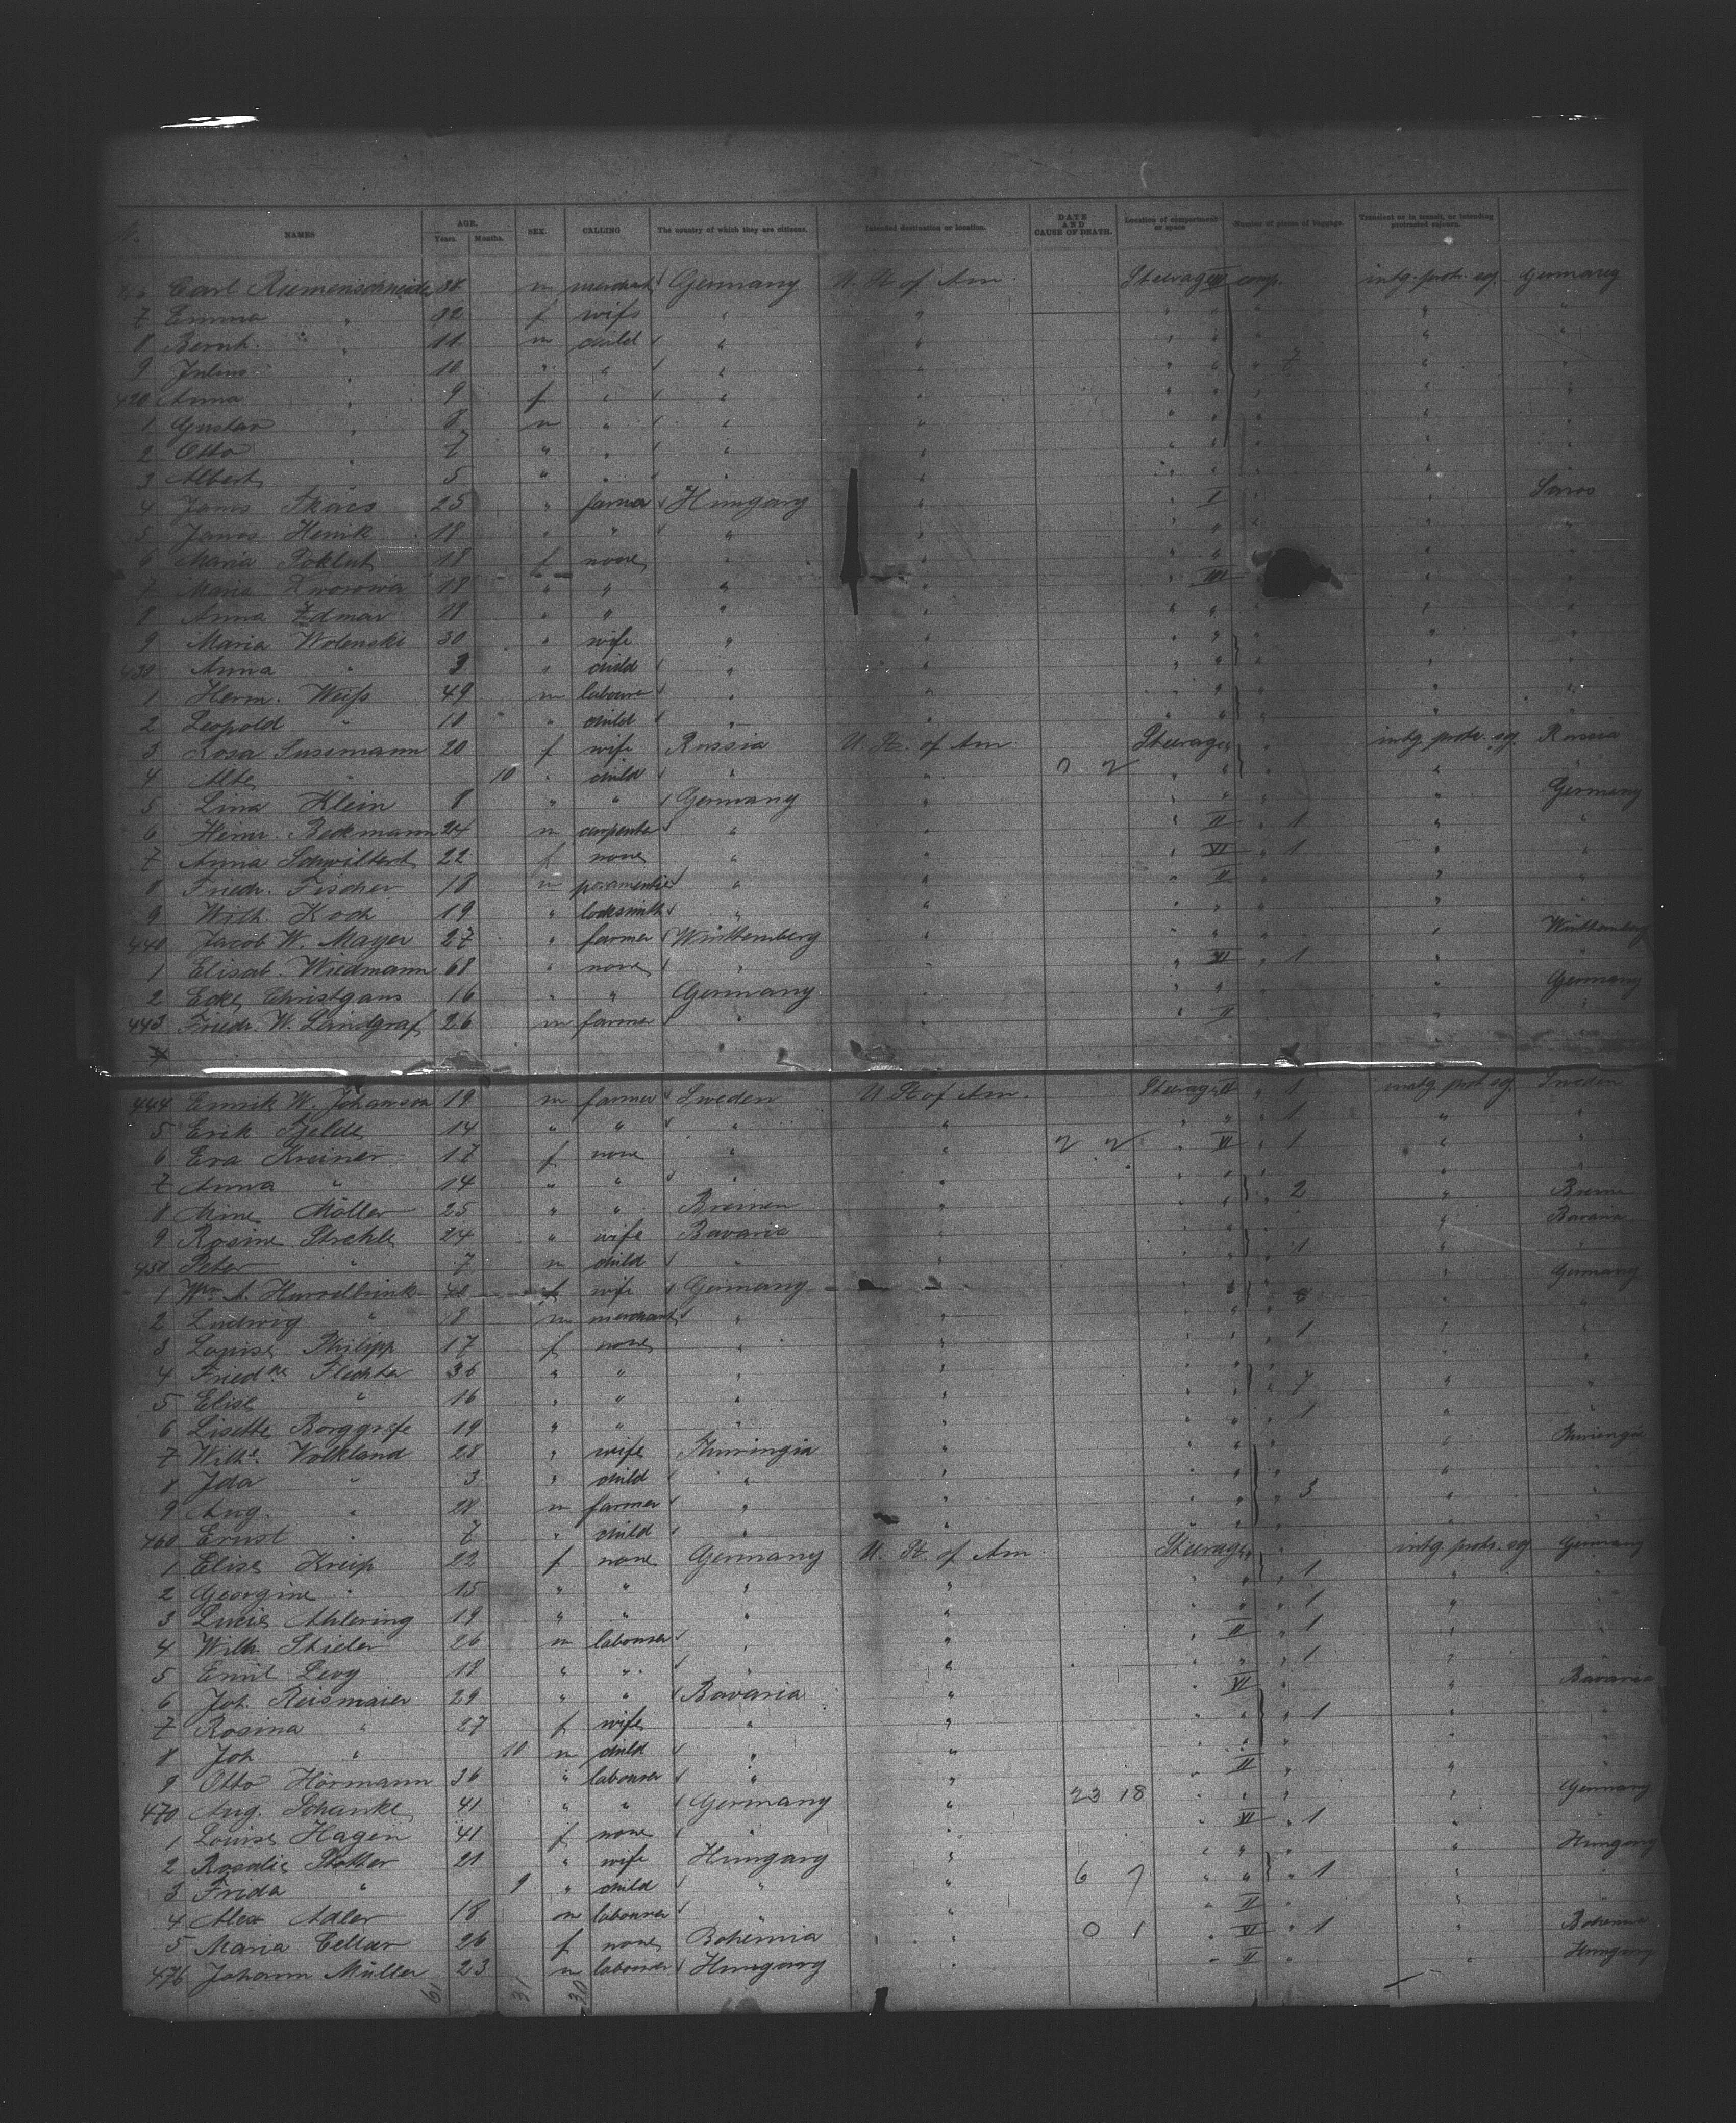 No. NAMES AGE. Years. Months. SEX. CALLING The country of which they are citizens. Intended destination or location. DATE AND CAUSE OF DEATH. Location of compartment or space Number of pieces of baggage. Transient or in transit, or intending protracted sojourn.
6 Carl Riemenschneider 38 m merchant Germany U. St of Am. Steerage III comp. intg. protr. soj. Germany
7 Emma " 32 f wife " "
8 Bernh. " 11 m child " "
9 Julius " 10 " " " " 7
420 Anna " 9 f " " "
1 Gustav " 8 m " " "
2 Otto " 7 " " " "
3 Albert 5 " " " "
4 Janos 25 " farmer Hungary " I Saros
5 Janos Henik 18 " " " "
6 Maria 18 f none " "
7 Maria 18 " " " " III
8 Anna Zdmar 18 " " " "
9 Maria Wolenski 30 " wife " "
430 Anna " 3 " child " "
1 Herm. Weiss 49 m labourer " "
2 Leopold " 10 " child " "
3 Rosa Sussmann 20 f wife Russia U. St. of Am. Steerage " intg. protr. soj. Russia
4 Alte " 10 " child " "
5 Lina Klein 8 " " Germany " Germany
6 Heinr. Beckmann 24 m carpenter " " II " 1
7 Anna Schwiltert 22 f none " " VI " 1
8 Friedr. Fischer 18 m " " II
9 Wilh. Koch 19 " locksmith " "
440 Jacob W. Mayer 27 " farmer Württemberg " Württemberg
1 Elisab. Wiedmann 68 " none " " VI " 1
2 Ecke Christgans 16 " " Germany " Germany
443 Friedr. W. Landgraf 26 m farmer " " II
444 Ennrik W. Johanson 19 m farmer Sweden U St of Am. Steerage II " 1 intg. protr. soj. Sweden
5 Erik Fjelde 14 " " " " " 1
6 Eva Kreiner 17 f none " " VI " 1
7 Anna " 14 " " " "
8 Mine Möller 25 " " Bremen " " 2 Bremen
9 Rosine Strehle 24 " wife Bavaria " Bavaria
450 Peter " 7 m child " " " 1
1 Wm A. Harrelbrink 40 f wife Germany " Germany
2 Ludwig " 18 m merchant " "
3 Louise Philipp 17 f none " " " 1
4 Friedke Flechter 36 " " " "
5 Elise " 16 " " " " " 7
6 Lisette Borggrefe 19 " " " " " 1
7 Wilhe. Volkland 28 " wife Thuringia " Thuringia
8 Ida " 3 " child " "
9 Aug. " 28 m farmer " " " 3
460 Ernst " 7 " child " "
1 Elise Kreip 22 f none Germany U. St. of Am. Steerage " intg. protr. soj Germany
2 Georgine " 15 " " " " " 1
3 Lucie Ahlering 19 " " " " " 1
4 Wilh. Stieler 26 m labourer " " II " 1
5 Emil Levy 18 " " " " " 1
6 Joh. Reismaier 29 " " Bavaria " VI Bavaria
7 Rosina " 27 f wife " " " 1
8 Joh " 10 m child " "
9 Otto Hörmann 36 " labourer " " II
470 Aug. Schanke 41 " " Germany " 23 18 Germany
1 Louise Hagen 41 f none " " VI " 1
2 Rosalie Stotter 21 " wife Hungary " Hungary
3 Frida " 9 " child " " 6 7 " 1
4 Alex Adler 18 m labourer " " II
5 Maria Cellar 26 f none Bohemia " 0 1 VI " 1 Bohemia
476 Johann Müller 23 m labourer Hungary " II Hungary
61 31 30